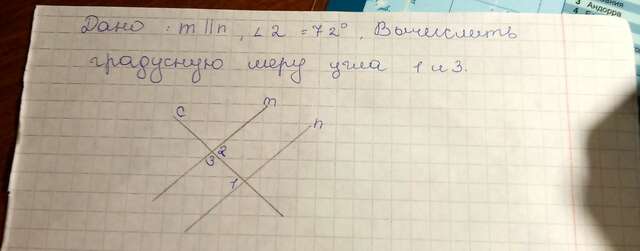 Дано : m || n, ∠2 = 72°, Вычислить
градусную меру угла 1 и 3.
c
m
n
3 2
1
3 Андорра
4